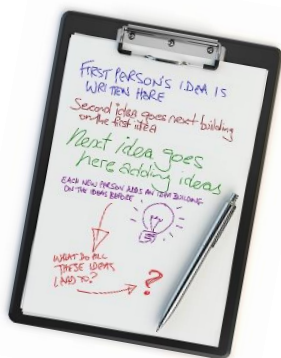 FIRST PERSON'S IDEA IS
WRITTEN HERE
Second idea goes next building
on the first idea
Next idea goes
here adding ideas
EACH NEW PERSON ADDS AN IDEA BUILDING
ON THE IDEAS BEFORE
WHAT DO ALL
THESE IDEAS
LEAD TO?
?